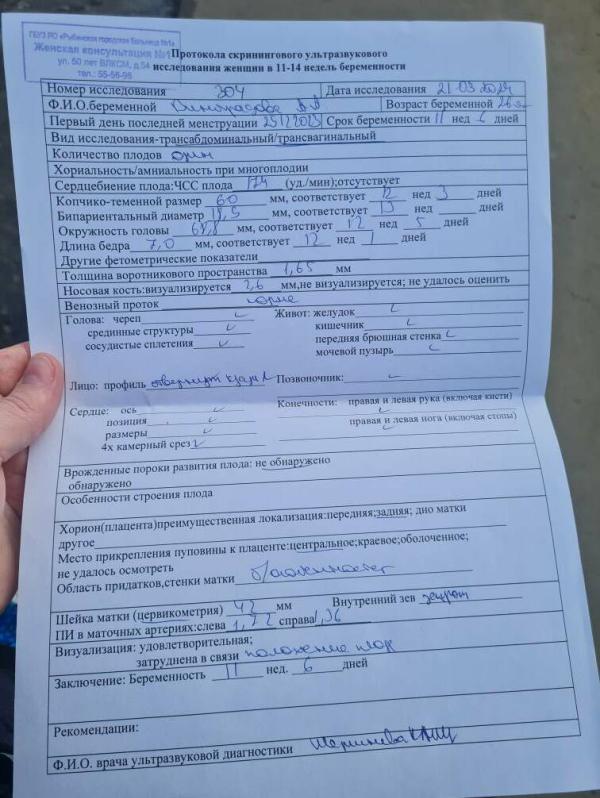 ГБУЗ РО «Рыбинская городская больница №1»
Женская консультация №1
ул. 50 лет ВЛКСМ, д.54
тел.: 55-56-95
Протокола скринингового ультразвукового
исследования женщин в 11-14 недель беременности
Номер исследования 304 Дата исследования 21.03.2024
Ф.И.О.беременной Возраст беременной 26
Первый день последней менструации 29.12.2023 Срок беременности 11 нед 6 дней
Вид исследования-трансабдоминальный/трансвагинальный
Количество плодов один
Хориальность/амниальность при многоплодии
Сердцебиение плода:ЧСС плода 174 (уд./мин);отсутствует
Копчико-теменной размер 60 мм, соответствует 12 нед 3 дней
Бипариентальный диаметр 18,5 мм, соответствует 13 нед дней
Окружность головы 68,8 мм, соответствует 12 нед 5 дней
Длина бедра 7,0 мм, соответствует 12 нед 1 дней
Другие фетометрические показатели
Толщина воротникового пространства 1,65 мм
Носовая кость:визуализируется 2,6 мм,не визуализируется; не удалось оценить
Венозный проток норма
Голова: череп Живот: желудок
срединные структуры кишечник
сосудистые сплетения передняя брюшная стенка
мочевой пузырь
Лицо: профиль Позвоночник:
Сердце: ось Конечности: правая и левая рука (включая кисти)
позиция
размеры правая и левая нога (включая стопы)
4х камерный срез
Врожденные пороки развития плода: не обнаружено
обнаружено
Особенности строения плода
Хорион(плацента)преимущественная локализация:передняя;задняя; дно матки
другое
Место прикрепления пуповины к плаценте:центральное;краевое;оболоченное;
не удалось осмотреть
Область придатков,стенки матки б/особенностей
Шейка матки (цервикометрия) 42 мм Внутренний зев закрыт
ПИ в маточных артериях:слева 1,72 справа 1,36
Визуализация: удовлетворительная;
затруднена в связи положение плода
Заключение: Беременность 11 нед. 6 дней
Рекомендации:
Ф.И.О. врача ультразвуковой диагностики